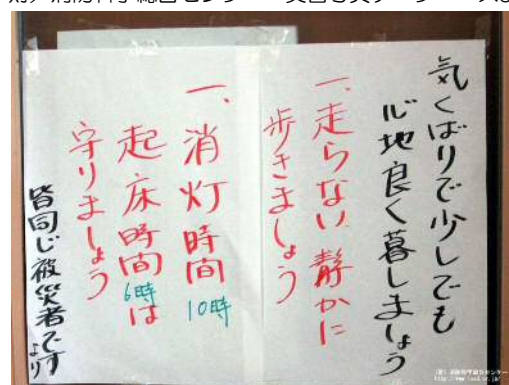 気くばりで少しでも
心地良く暮しましょう
一、走らない 静かに
歩きましょう
一、消灯時間 10時
起床時間 6時は
守りましょう
皆同じ被災者です
より